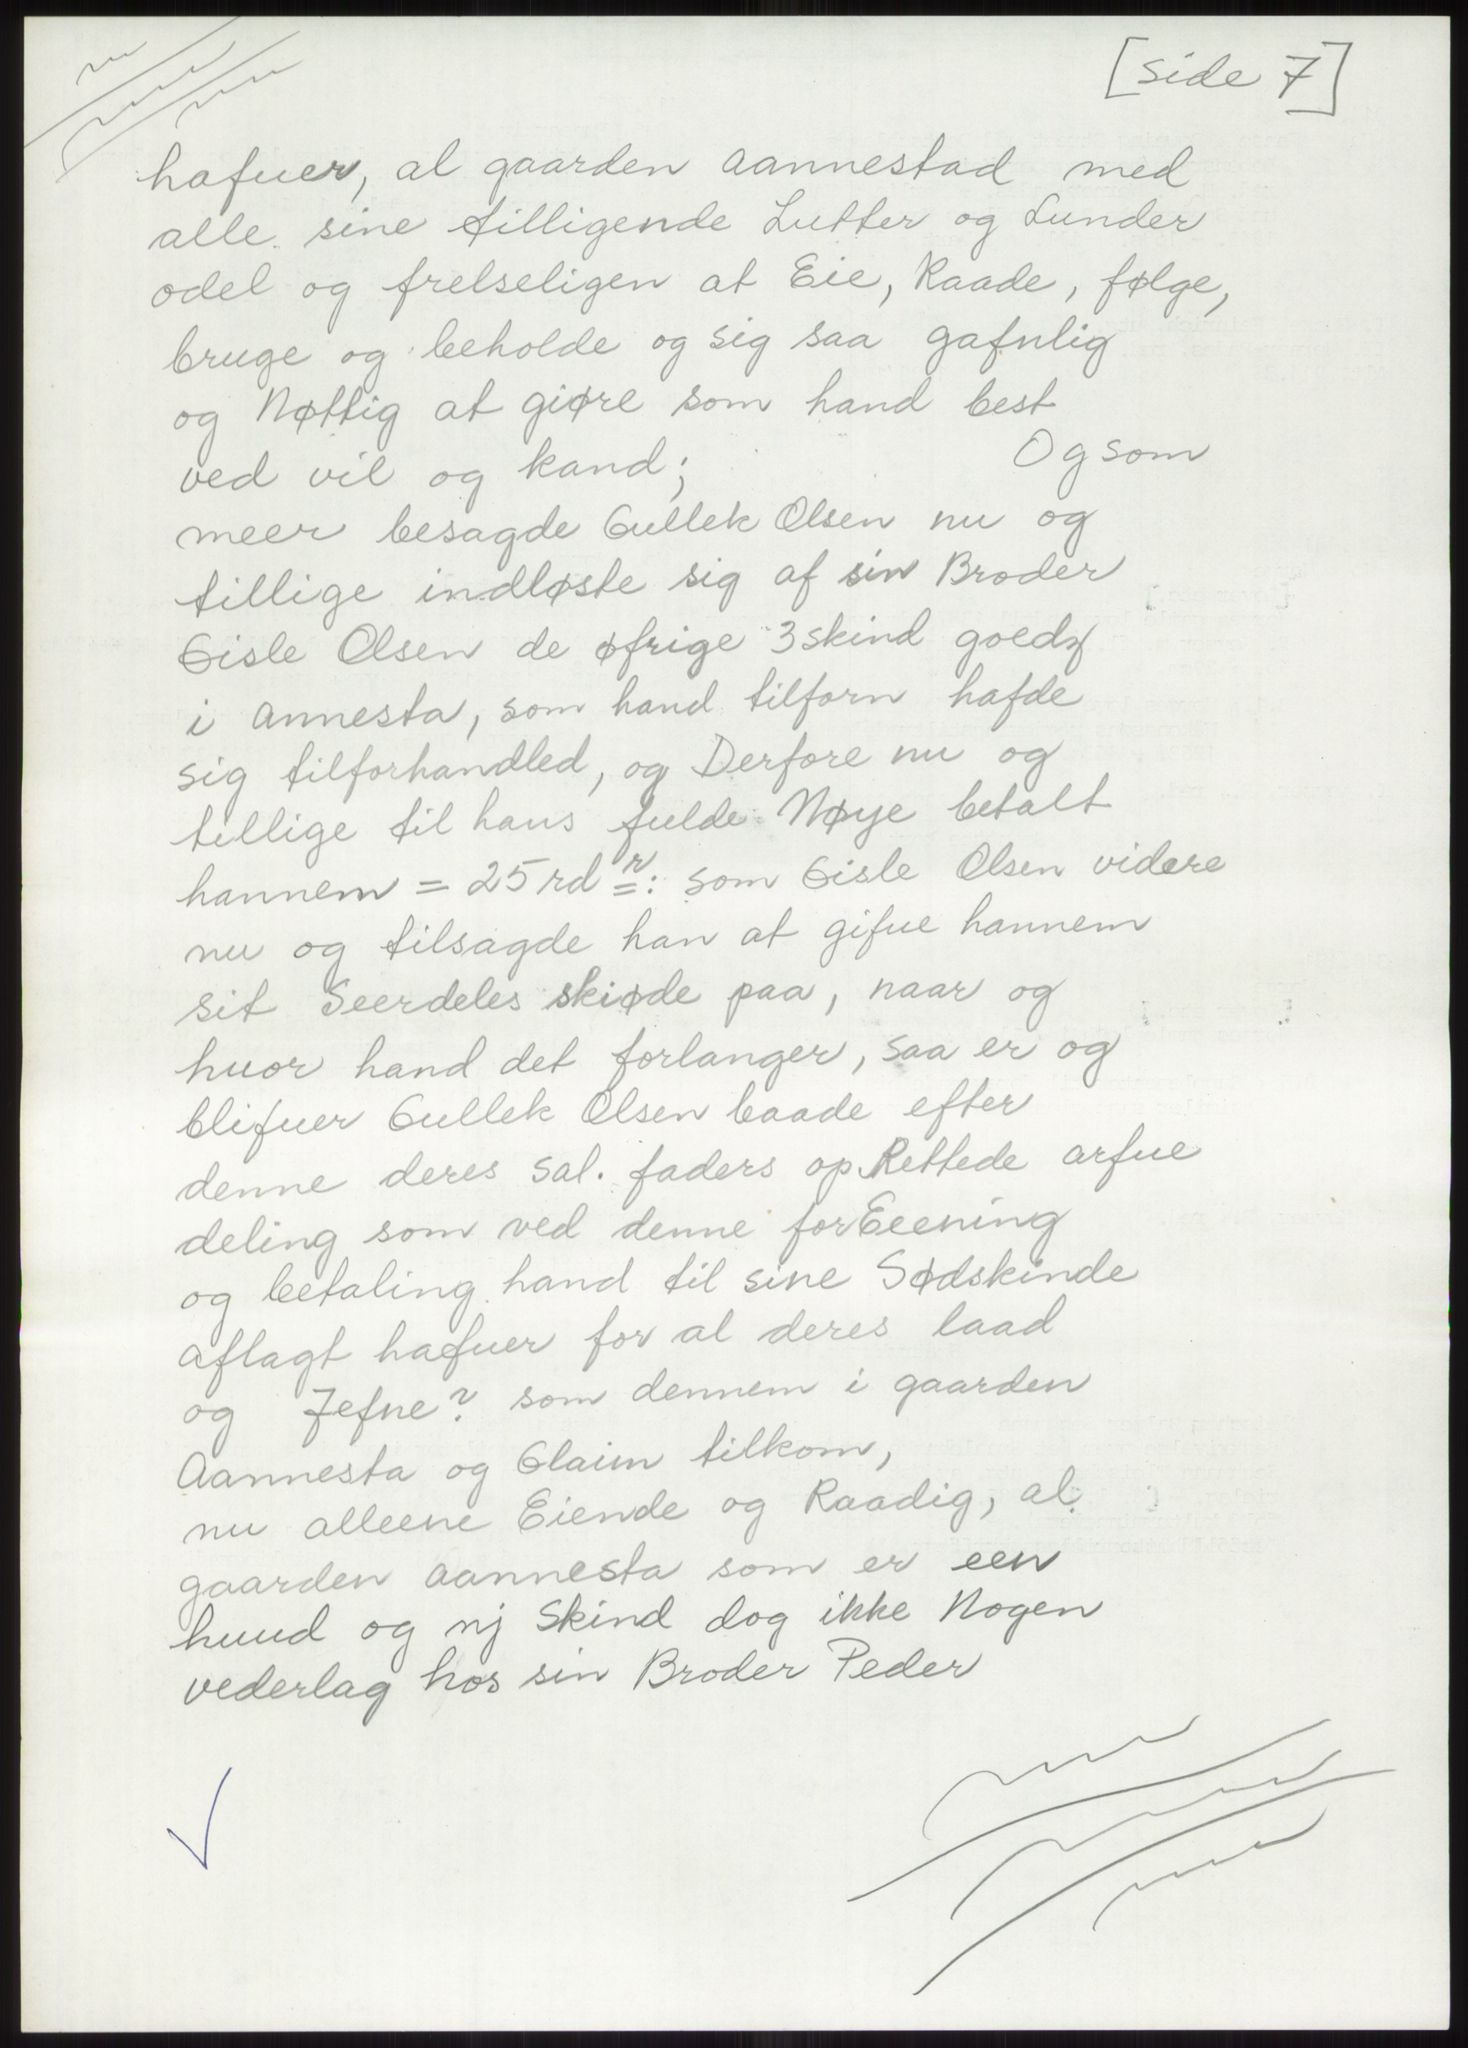 [side 7]
hafuer, al gaarden aannestad med
alle sine tilligende Lutter og Lunder
odel og frelseligen at Eie, Raade, følge,
bruge og beholde og sig saa gafnlig
og Nøttig at giøre som hand best
ved vil og kand; Og som
meer besagde Gullek Olsen nu og
tillige indløste sig af sin Broder
Gisle Olsen de øfrige 3 skind goeds
i annesta, som hand tilforn hafde
sig tilforhandled, og Derfore nu og
tillige til hans fulde Nøye betalt
hannem = 25 rd r: som Gisle Olsen videre
nu og tilsagde han at gifue hannem
sit Seerdeles skiøde paa, naar og
huor hand det forlanger, saa er og
blifuer Gullek Olsen baade efter
denne deres sal. faders opRettede arfue
deling som ved denne forEeening
og betaling hand til sine Sødskinde
aflagt hafuer for al deres laad
og Jefne? som dennem i gaarden
Aannesta og Glaim tilkom,
nu alleene Eiende og Raadig, al
gaarden aannesta som er een
huud og nj Skind dog ikke Nogen
vederlag hos sin Broder Peder